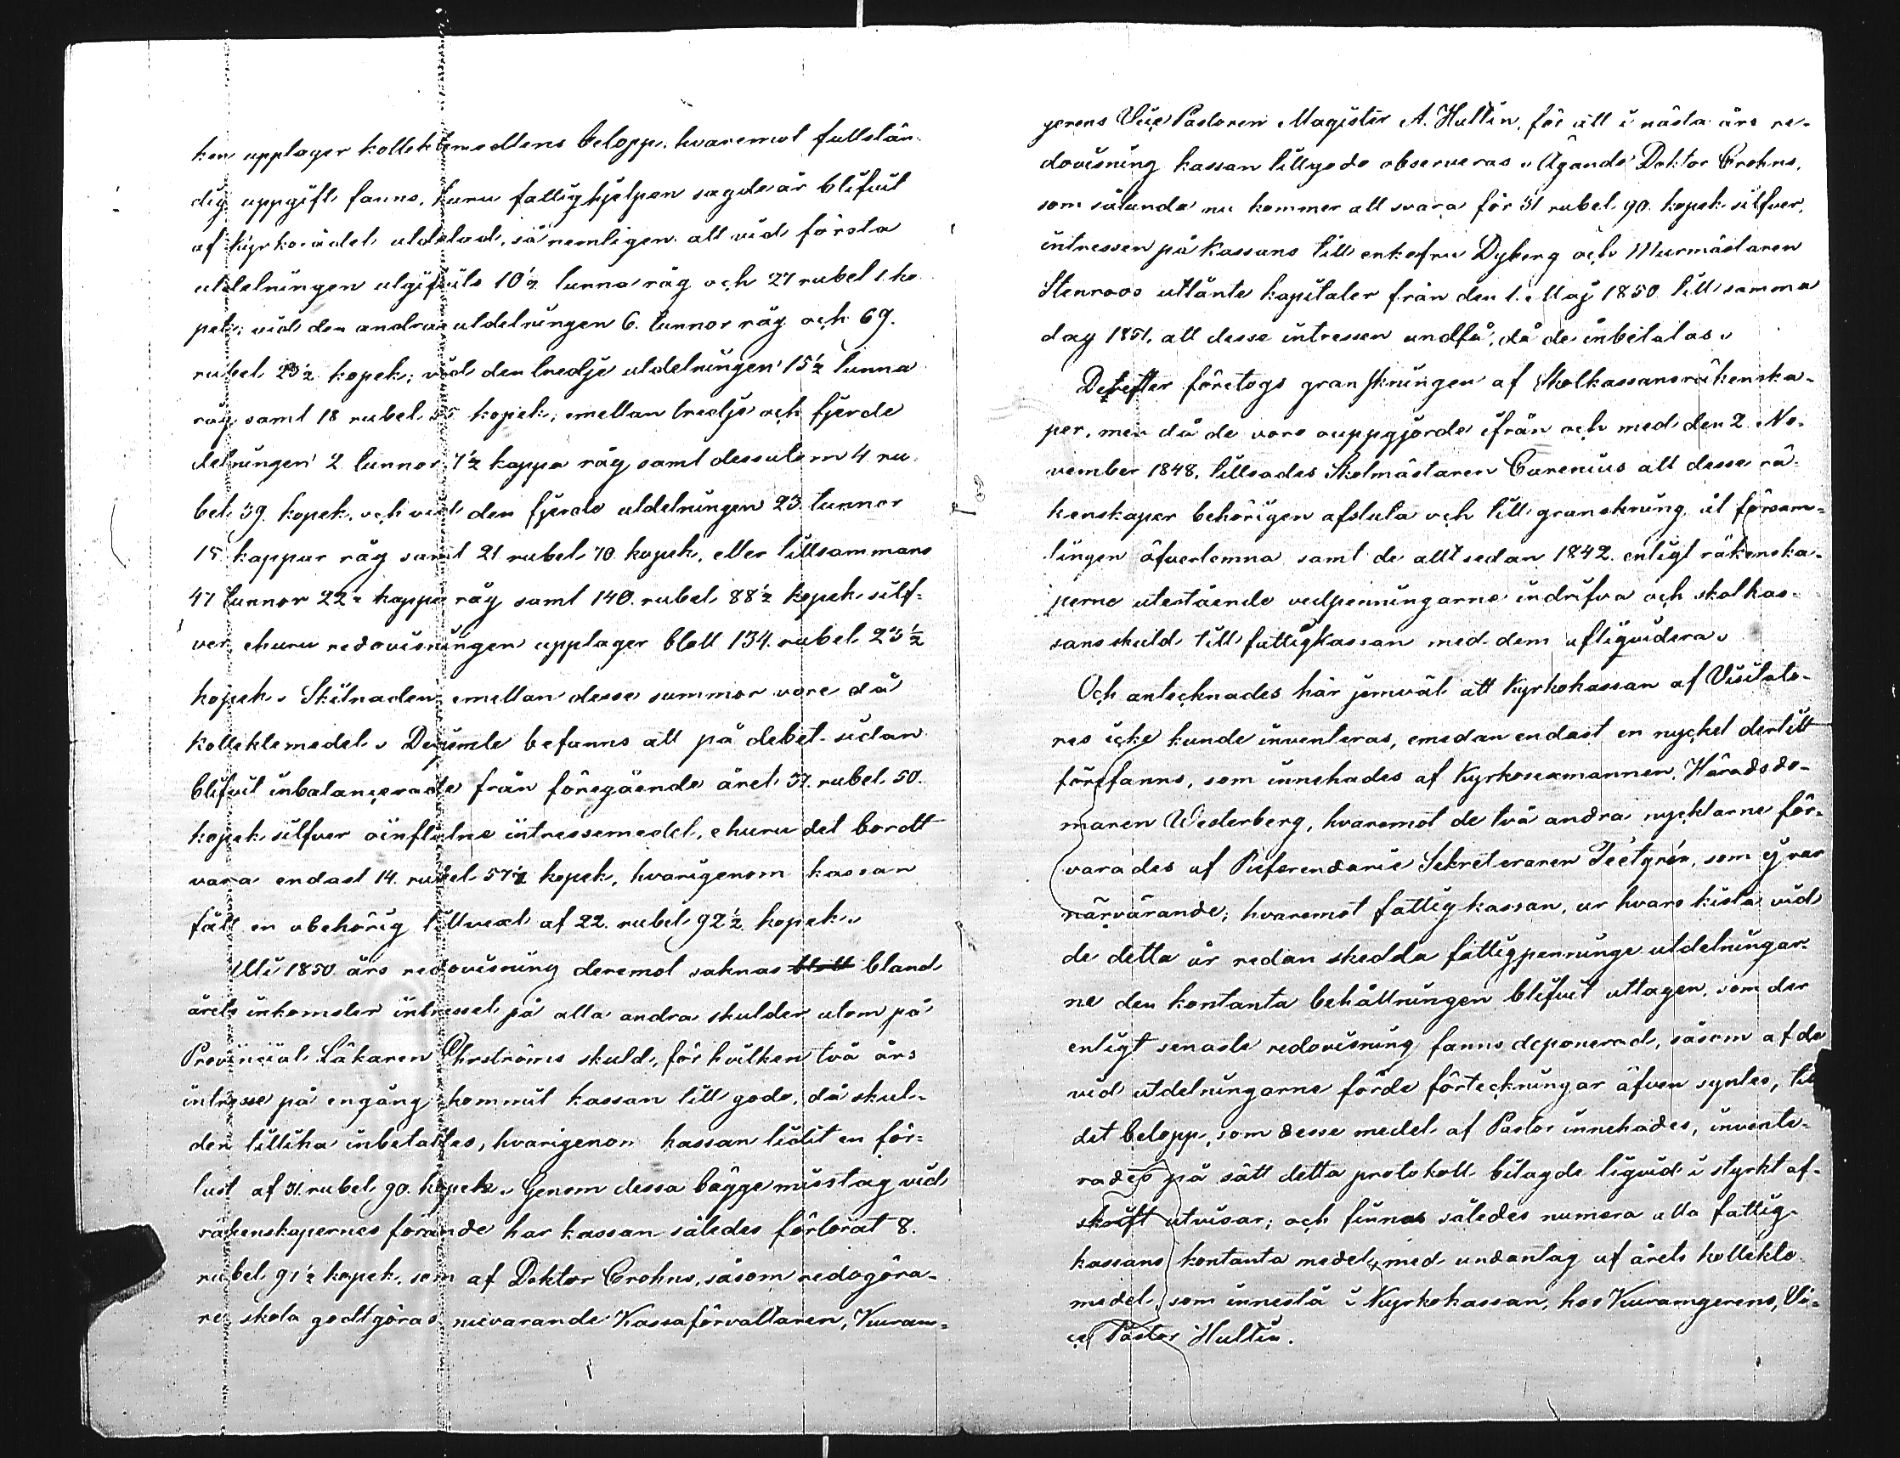 ken upptager kollektmedlens belopp, hvaremot fullstän-
dig uppgift fanns, huru fattighjelpen sagde år blifvit
af Kyrkorådet utdelad, så nemligen att vid första
utdelningen utgifvits 10½ tunna råg och 27 rubel 1. ko-
pek; vid den andra utdelningen 6. tunnor råg och 69.
rubel 23½ kopek; vid den tredje utdelningen 15½ tunna
råg samt 18 rubel 55 kopek; emellan tredje och fjerde
delningen 2 tunnor 7½ kappa råg samt dessutom 4 ru-
bel 39. kopek. och vid den fjerde utdelningen 23 tunnor
15 kappar råg samt 21 rubel 70 kopek, eller tillsammans
47 tunnor 22½ kappa råg samt 140. rubel 88½ kopek silf-
ver, ehuru redovisningen upptager blott 134. rubel 23½
kopek. Skilnaden emellan desse summor vore då
kollektemedel. Dejemte befanns att på debet-sidan
blifvit inbalancerade från föregående året 37. rubel 50.
kopek silfver oinflutne intressemedel, ehuru det bordt
vara endast 14. rubel 57½ kopek, hvarigenom kassan
fått en obehörig tillvext af 22. rubel 92½ kopek.
Uti 1850 års redovisning deremot saknas blott bland
årets inkomster intresset på alla andra skulder utom på
Provincial Läkaren Ehrströms skuld, för hvilken två års
intresse på engång kommit kassan till godo, då skul-
den tillika inbetaltes, hvarigenom kassan lidit en för-
lust af 31. rubel 90. kopek. Genom dessa bägge misstag vid
räkenskapernes förande har kassan således förlorat 8.
rubel 97½ kopek, som af Doktor Crohns, såsom redogöra-
re, skola godtgöras nuvarande Kassaförvaltaren, Kuram-
gerens Vice Pastoren Magister A. Hultin, för att i nästa års re-
dovisning kassan tillgodo observeras. Ägande Doktor Crohns,
som sålunda nu kommer att svara för 31 rubel 90. kopek silfver,
intressen på Kassans till enkefru Dyberg och Murmästaren
Stenroos utlånte kapitaler från den 1. Maj 1850 till samma
dag 1851, att desse intressen undfå, då de inbetalas.
Derefter företogs granskningen af Skolkassansräkenska-
per, men då de voro ouppgjorde ifrån och med den 2. No-
vember 1848, tillsades Skolmästaren Carenius att desse rä-
kenskaper behörigen afsluta och till granskning åt försam-
lingen öfverlemna samt de allt sedan 1842. enligt räkenska-
perne utestående vedpenningarne indrifva och skolkas-
sans skuld till fattigkassan med dem afliqvidera.
Och antecknades här jemväl att Kyrkokassan af Visitato-
res icke kunde inventeras, emedan endast en nyckel dertill
förefanns, som innehades af Kyrkosexmannen, Häradsdo-
maren Westerberg, hvaremot de två andra nycklarne för-
varades af Referendarie Sekreteraren Teetgrén, som ej var
närvarande; hvaremot fattigkassan, ur hvars kista vid
de detta år redan skedda fattigpenninge utdelningar-
ne den kontanta behållningen blifvit uttagen, som der
enligt senaste redovisning fanns deponerad, såsom af de
vid utdelningarne förde förteckningar äfven syntes, till
det belopp, som desse medel af Pastor innehades, invente-
rades på sätt detta protokoll bilagde liqvid i styrkt af-
skrift utvisar; och finnas således numera alla fattig-
kassans kontanta medel, med undantag af årets kollekto-
medel, som innestå i Kyrkokassan, hos Kuramgerens, Vi-
ce Pastor Hultin.